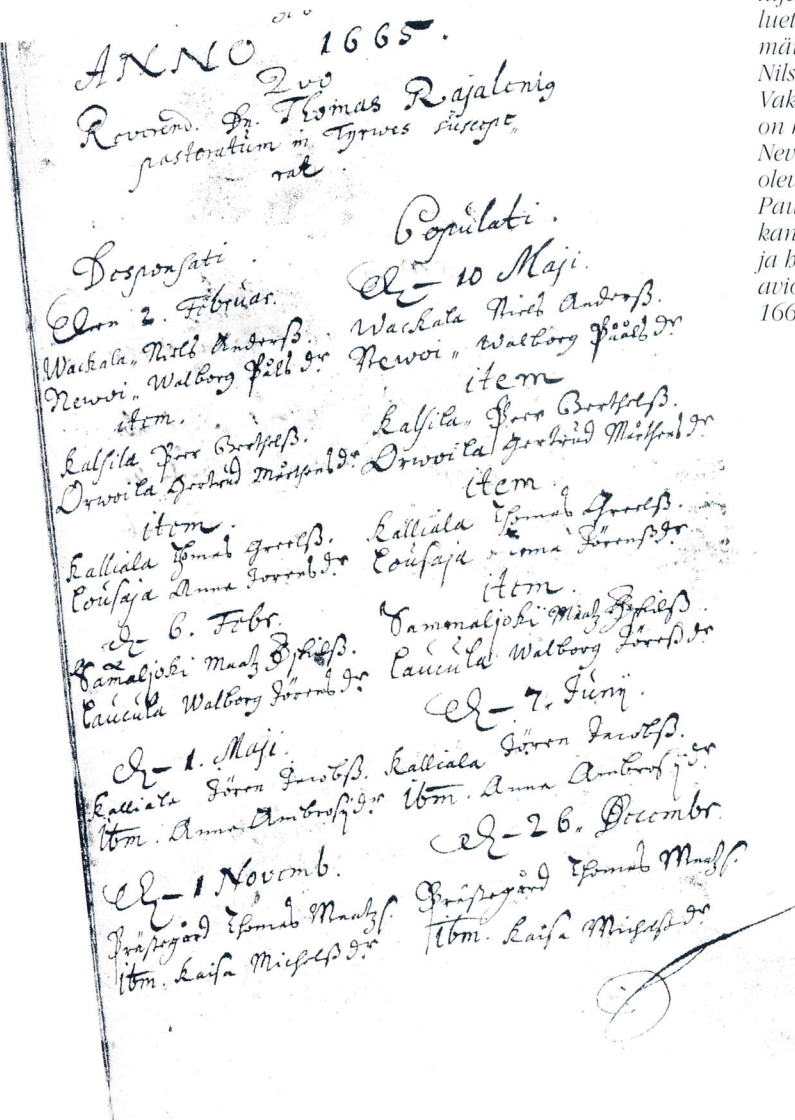 ANNO 1665.
Quo
Reverend. Dn. Thomas Rajalenig
pastoratum in Tyrwes suscepe„
rat
Desponsati
Den 2. Februar.
Wackala„ Niels Anderß.
Newoi„ Walborg Påls dr
item.
Kalsila Peer Berthelß.
Orwoila Gertrud Mårthens dr
item.
Kalliala Thomas Greelß.
Lousaja Anna Jörens dr
d– 6. Febr.
Sam̃aljoki Maatz Eskilß.
Laucula Walborg Jörens dr
d– 1. Maji.
Kalliala Jören Jacobß.
ibm. Anna Ambrosij dr
d– 1 Novemb.
Prästegård Thomas Maatzs.
ibm. Kaisa Michelß dr
Copulati.
d– 10 Maji.
Wackala Niels Anderß.
Newoi„ Walborg Pååls dr
item
Kalsila„ Peer Berthelß.
Orwoila Gertrud Mårthens dr
item
Kalliala Thomas Greelß.
Lousaja Jörenß dr
item.
Sammaljoki Maatz Eskilß.
Laucula Walborg Jörenß dr
d– 7. Junij.
Kalliala Jören Jacobß.
ibm. Anna Ambrosij dr
d– 26. Decembr.
Prästegård Thomas Maatzs.
ibm. Kaisa Michelß dr
luet
mär
Nils
Vak
on
Nev
olev
Pau
kan
ja
avio
166